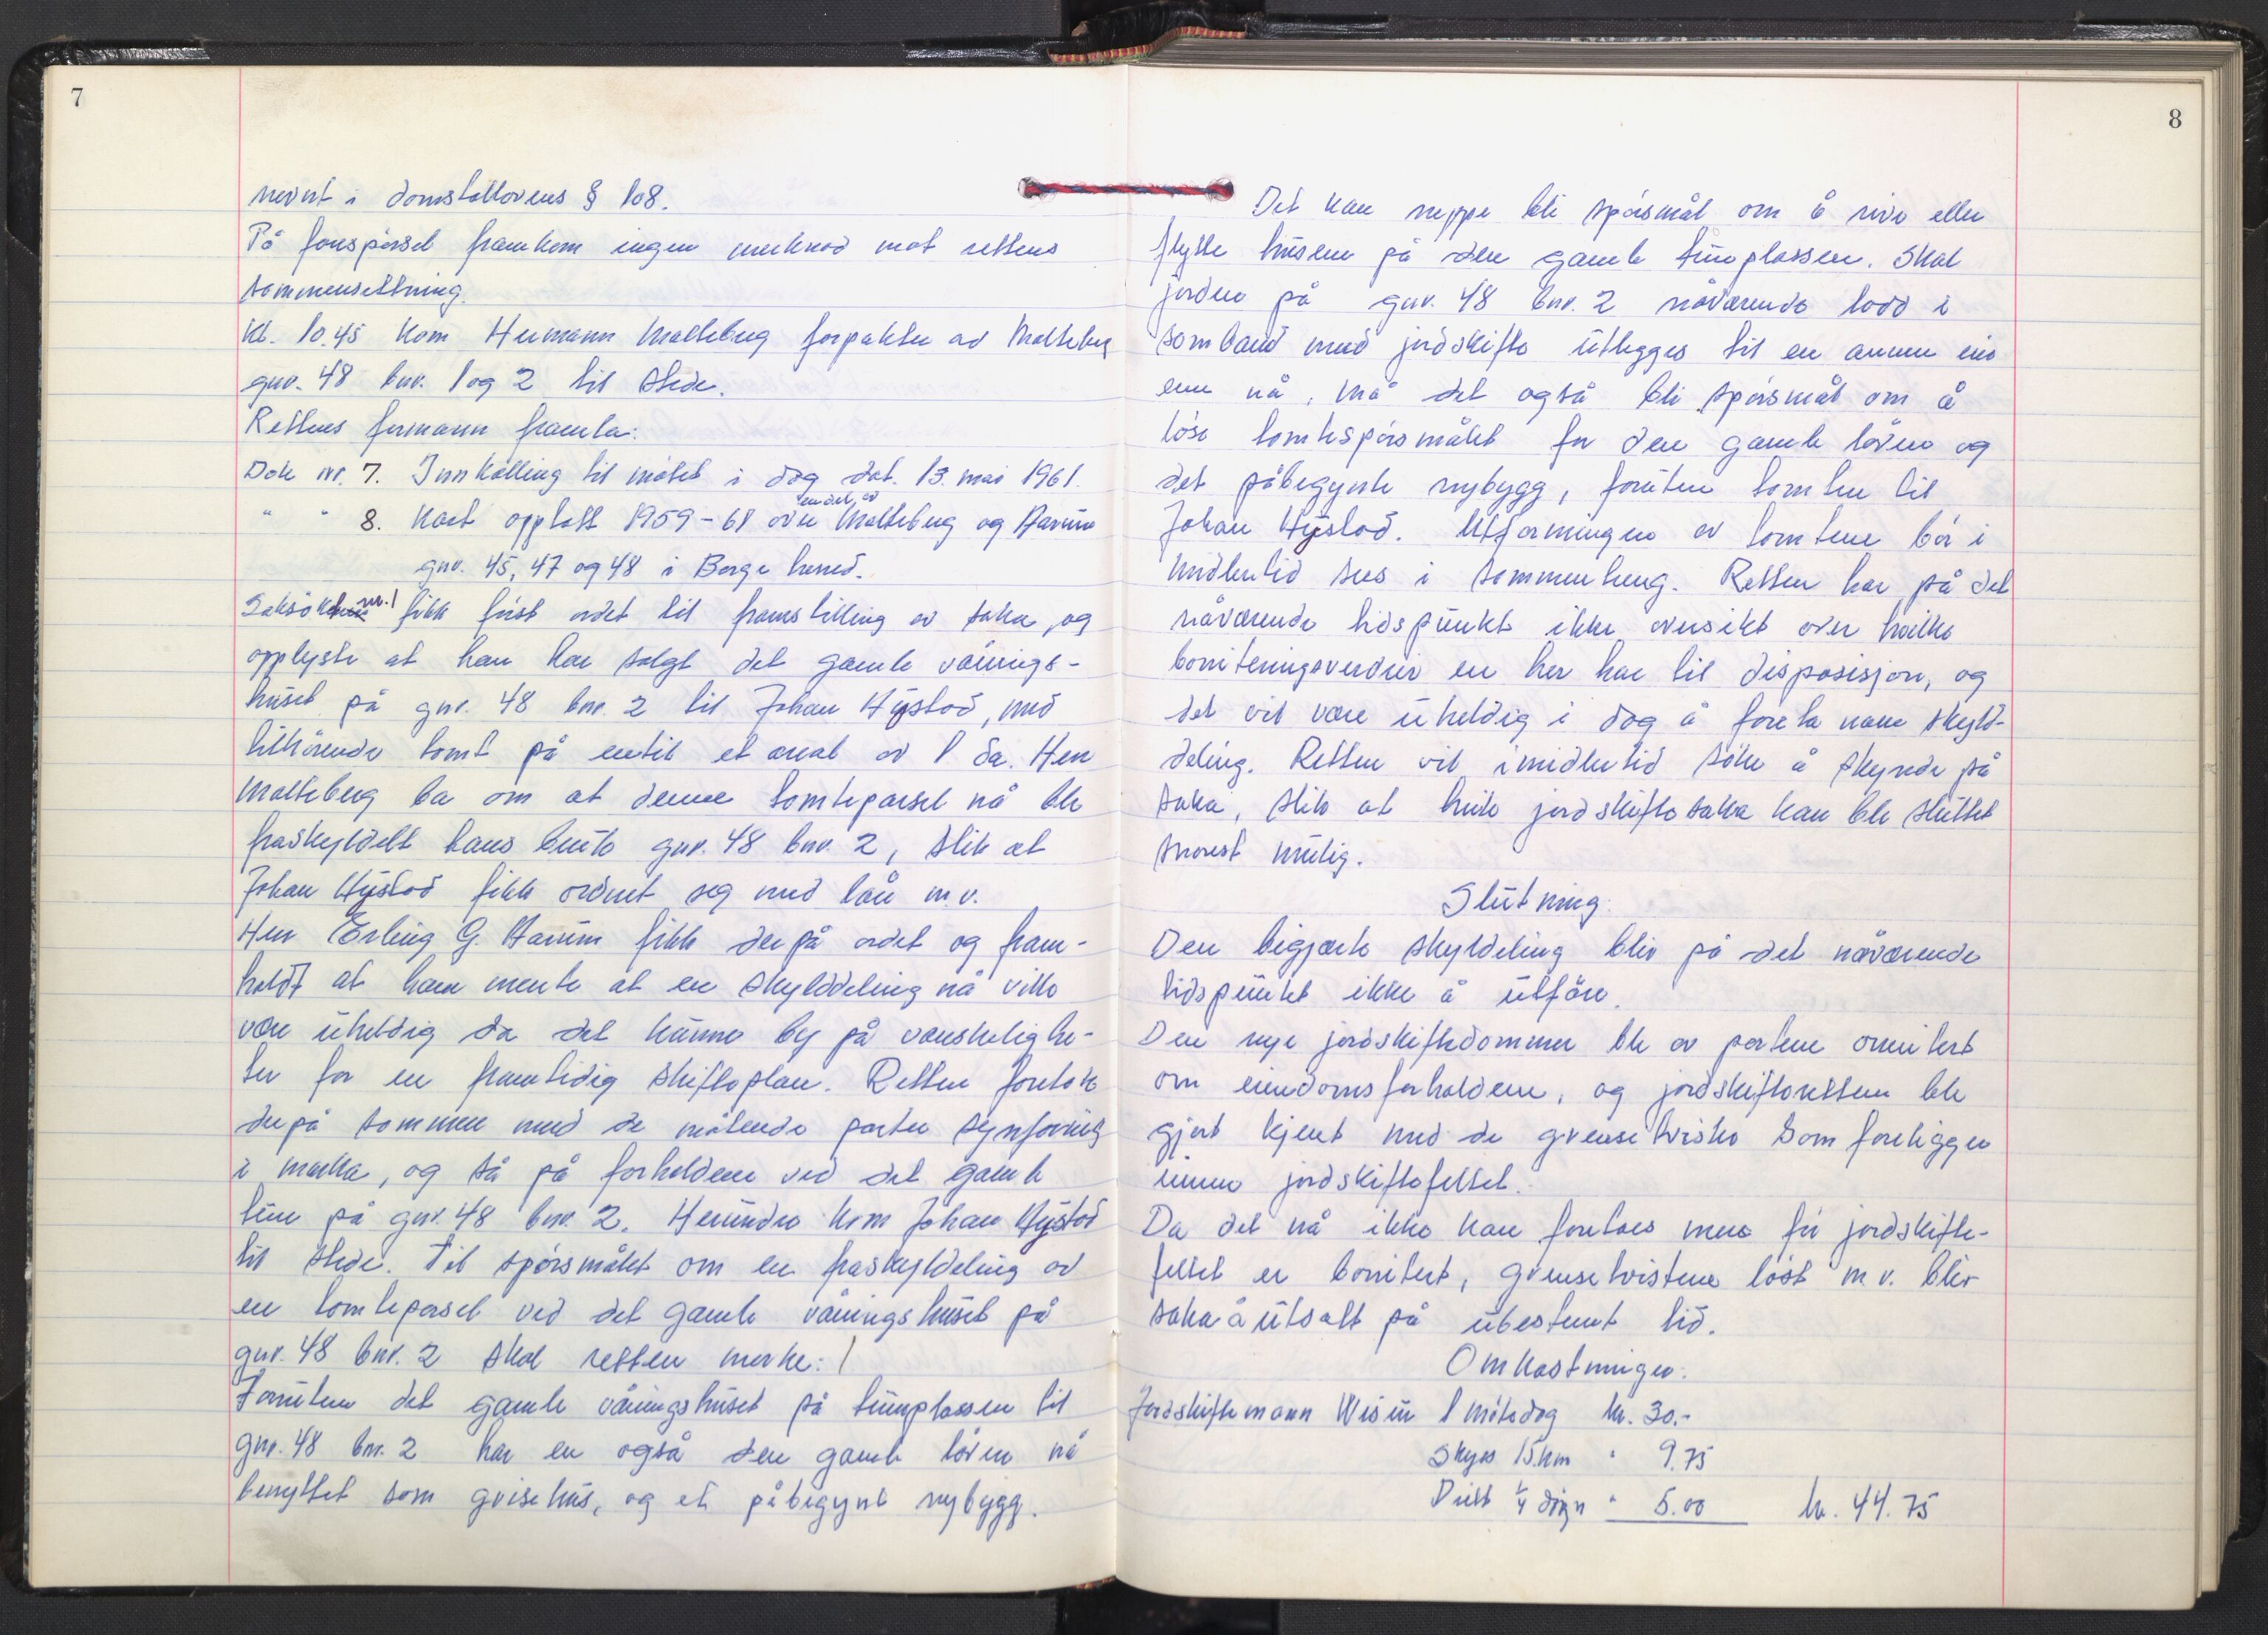 7
nevnt i domstollovens § 108.
På forespørsel framkom ingen merknad mot rettens
sammensettning.
Kl. 10.45 kom Hermann Malteberg forpakter av Malteberg
gnr. 48 bnr. 1 og 2 til stede.
Rettens formann framla:
Dok nr. 7. Innkalling til møtet i dag dat. 13. mai 1961.
" " 8. Kart opptatt 1959-61 over en del av Malteberg og Harum
gnr. 45, 47 og 48 i Borge herred.
Saksøker nr. 1 fikk først ordet til framstilling av saka, og
opplyste at han har solgt det gamle vånings-
huset på gnr. 48 bnr. 2 til Johan Hystad, med
tilhørende tomt på inntil et areal av 1 da. Herr
Malteberg ba om at denne tomteparsel nå ble
fraskyldelt hans bruk gnr. 48 bnr. 2, slik at
Johan Hystad fikk ordnet seg med lån m.v.
Herr Erling G. Harum fikk derpå ordet og fram-
holdt at han mente at en skylddeling nå ville
være uheldig da det kunne by på vanskelighe-
ter for en framtidig skifteplan. Retten foretok
derpå sammen med de møtende parter synfaring
i marka, og så på forholdene ved det gamle
tun på gnr. 48 bnr. 2. Herunder kom Johan Hystad
til stede. Til spørsmålet om en fraskyldeling av
en tomteparsel ved det gamle våningshuset på
gnr. 48 bnr. 2 skal retten merke:
Foruten det gamle våningshuset på tunplassen til
gnr. 48 bnr. 2 har en også den gamle låven nå
benyttet som grisehus, og et påbegynt nybygg.
8
Det kan neppe bli spørsmål om å rive eller
flytte husene på den gamle tunplassen. Skal
jorden på gnr. 48 bnr. 2 nåværende lodd i
samband med jordskifte utlegges til en annen eier
enn nå, må det også bli spørsmål om å
løse tomtespørsmålet for den gamle låven og
det påbegynte nybygg, foruten tomten til
Johan Hystad. Utformingen av tomtene bør i
midlertid sees i sammenheng. Retten har på det
nåværende tidspunkt ikke oversikt over hvilke
boniteringsverdier en her har til disposisjon, og
det vil være uheldig i dag å foreta noen skyld-
deling. Retten vil imidlertid søke å skynde på
saka, slik at hele jordskiftesaka kan ble sluttet
snarest mulig.
Slutning:
Den begjærte skyldeling blir på det nåværende
tidspunkt ikke å utføre.
Den nye jordskiftedommer ble av partene orientert
om eiendomsforholdene, og jordskifteretten ble
gjort kjent med de grensetvister som foreligger
innen jordskiftefeltet.
Da det nå ikke kan foretaes mere før jordskifte-
feltet er bonitert, grensetvistene løst m.v. blir
saka å utsatt på ubestemt tid.
Omkostninger:
Jordskiftemann Wisur 1 møtedag kr. 30.-
Skyss 15 km " 9.75
Diett 1/4 døgn " 5.00 kr. 44.75